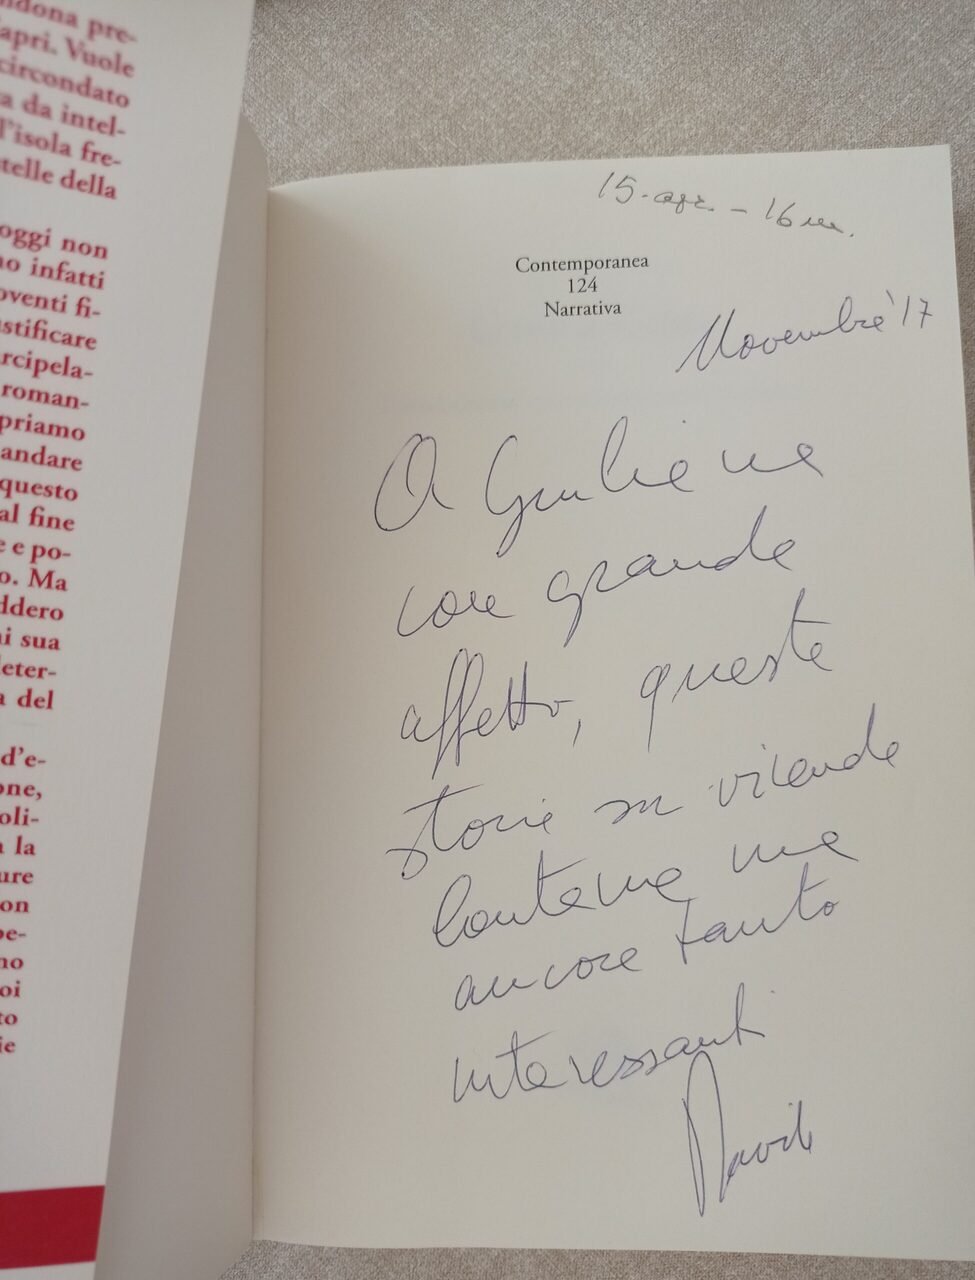 ndona pre-
apri. Vuole
circondato
a da intel-
l'isola fre-
stelle della
oggi non
no infatti
oventi fi-
stificare
rcipela-
roman-
priamo
andare
questo
al fine
e e po-
o. Ma
ddero
ni sua
deter-
a del
d'e-
one,
oli-
a la
ure
on
pe-
no
oi
to
ie
15. apr. - 16 m.
Contemporanea
124
Narrativa
Novembre '17
A Giuliana
con grande
affetto, queste
storie su vicende
lontane ma
ancora tanto
interessanti